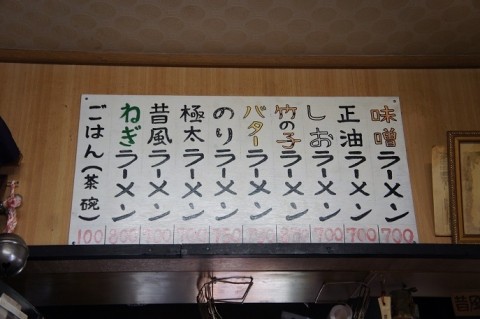 味噌ラーメン 700
正油ラーメン 700
しおラーメン 700
竹の子ラーメン
バターラーメン
のりラーメン 750
極太ラーメン 700
昔風ラーメン
ねぎラーメン 800
ごはん(茶碗) 100
昔風